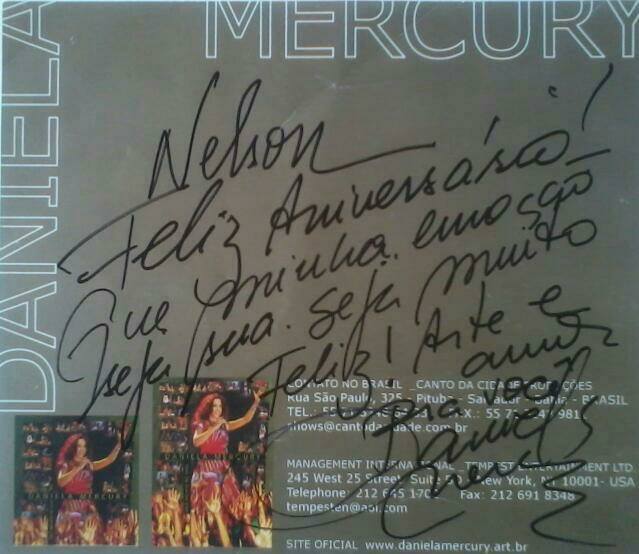 DANIELA
MERCURY
Nelson
Feliz Aniversário!
Que minha emoção
seja sua. Seja muito
Feliz! Arte e
amor
para você
Daniela
CONTATO NO BRASIL _CANTO DA CIDADE PRODUÇÕES
Rua São Paulo, 325 - Pituba - Salvador - Bahia - BRASIL
TEL.: 55
shows@cantodacidade.com.br
MANAGEMENT INTERNACIONAL _TEMPEST ENTERTAINMENT LTD.
245 West 25 Street, New York, NY 10001- USA
Telephone: 212 645 Fax: 212 691 8348
tempesten@aol.com
SITE OFICIAL www.danielamercury.art.br
DANIELA MERCURY
DANIELA MERCURY